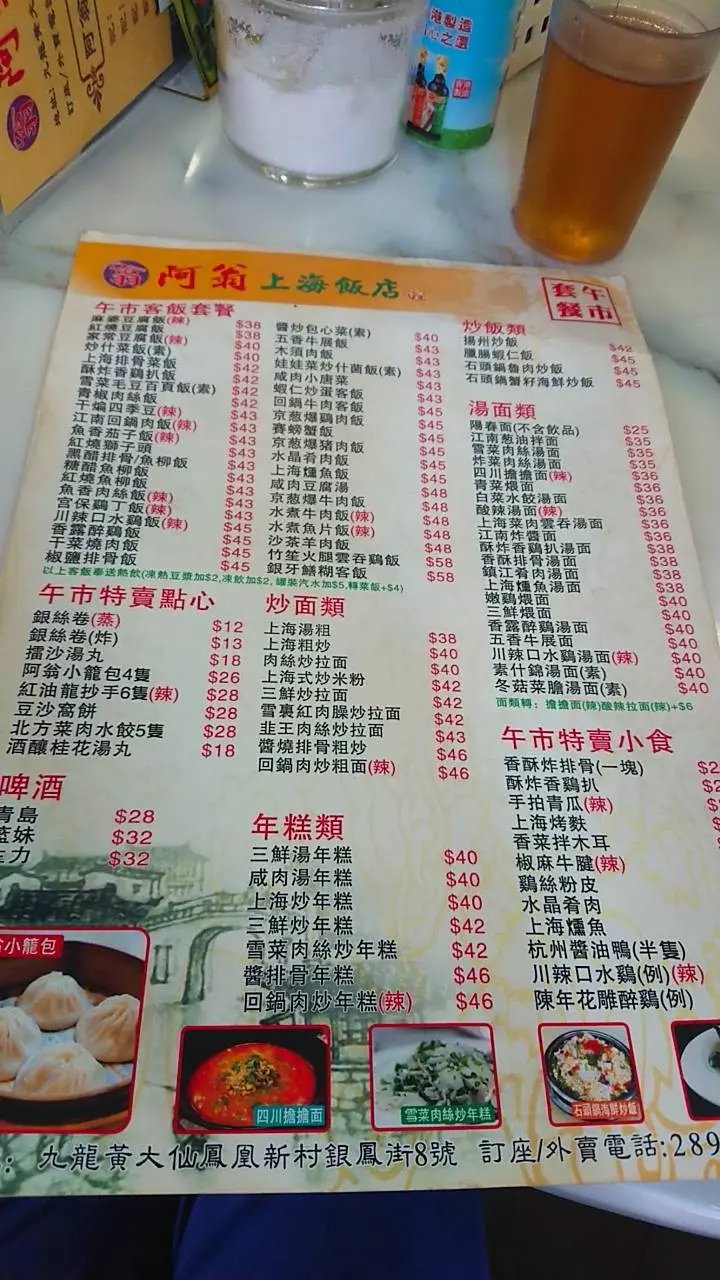 港製造
心之選
阿翁上海飯店
午市套餐
午市客飯套餐
麻婆豆腐飯(辣) $38
紅燒豆腐飯 $38
家常豆腐飯(辣) $40
炒什菜飯(素) $40
上海排骨菜飯 $43
酥炸香鷄扒飯 $43
雪菜毛豆百頁飯(素) $42
青椒肉絲飯 $43
干煸四季豆(辣) $43
江南回鍋肉飯(辣) $43
魚香茄子飯(辣) $43
紅燒獅子頭 $43
黑醋排骨/魚柳飯 $43
糖醋魚柳飯 $43
紅燒魚柳飯 $43
魚香肉絲飯(辣) $43
宮保鷄丁飯(辣) $43
川辣口水鷄飯(辣) $45
香露醉鷄飯 $45
干菜燒肉飯 $45
椒鹽排骨飯 $45
醬炒包心菜(素) $40
五香牛展飯 $43
木須肉飯 $43
娃娃菜炒什菌飯(素) $43
咸肉小唐菜 $43
蝦仁炒蛋客飯 $43
回鍋牛肉客飯 $45
京葱爆鷄肉飯 $45
賽螃蟹飯 $45
京葱爆豬肉飯 $45
水晶肴肉飯 $45
上海燻魚飯 $45
咸肉豆腐湯 $48
京葱爆牛肉飯 $48
水煮牛肉飯(辣) $48
水煮魚片飯(辣) $48
沙茶羊肉飯 $48
竹笙火腿雲吞鷄飯 $58
銀牙鱔糊客飯 $58
以上客飯奉送熱飲(凍熱豆漿加$2,凍飲加$2, 罐裝汽水加$5,轉菜飯+$4)
炒飯類
揚州炒飯 $42
臘腸蝦仁飯 $45
石頭鍋魯肉炒飯 $45
石頭鍋蟹籽海鮮炒飯 $45
湯面類
陽春面(不含飲品) $25
江南葱油拌面 $35
雪菜肉絲湯面 $35
炸菜肉絲湯面 $35
四川擔擔面(辣) $36
青菜煨面 $36
白菜水餃湯面 $36
酸辣湯面(辣) $36
上海菜肉雲吞湯面 $36
江南炸醬面 $36
酥炸香鷄扒湯面 $38
香酥排骨湯面 $38
鎮江肴肉湯面 $38
上海燻魚湯面 $38
嫩鷄煨面 $40
三鮮煨面 $40
香露醉鷄湯面 $40
五香牛展面 $40
川辣口水鷄湯面(辣) $40
素什錦湯面(素) $40
冬菇菜膽湯面(素) $40
面類轉: 擔擔面(辣)酸辣拉面(辣)+$6
午市特賣點心
銀絲卷(蒸) $12
銀絲卷(炸) $13
擂沙湯丸 $18
阿翁小籠包4隻 $26
紅油龍抄手6隻(辣) $28
豆沙窩餅 $28
北方菜肉水餃5隻 $28
酒釀桂花湯丸 $18
炒面類
上海湯粗 $38
上海粗炒 $40
肉絲炒拉面 $40
上海式炒米粉 $42
三鮮炒拉面 $42
雪裏紅肉臊炒拉面 $42
韭王肉絲炒拉面 $43
醬燒排骨粗炒 $46
回鍋肉炒粗面(辣) $46
午市特賣小食
香酥炸排骨(一塊)
酥炸香鷄扒
手拍青瓜(辣)
上海烤麩
香菜拌木耳
椒麻牛腱(辣)
鷄絲粉皮
水晶肴肉
上海燻魚
杭州醬油鴨(半隻)
川辣口水鷄(例)(辣)
陳年花雕醉鷄(例)
啤酒
青島 $28
藍妹 $32
生力 $32
年糕類
三鮮湯年糕 $40
咸肉湯年糕 $40
上海炒年糕 $40
三鮮炒年糕 $42
雪菜肉絲炒年糕 $42
醬排骨年糕 $46
回鍋肉炒年糕(辣) $46
小籠包
四川擔擔面
雪菜肉絲炒年糕
石頭鍋海鮮炒飯
: 九龍黃大仙鳳凰新村銀鳳街8號 訂座/外賣電話:289